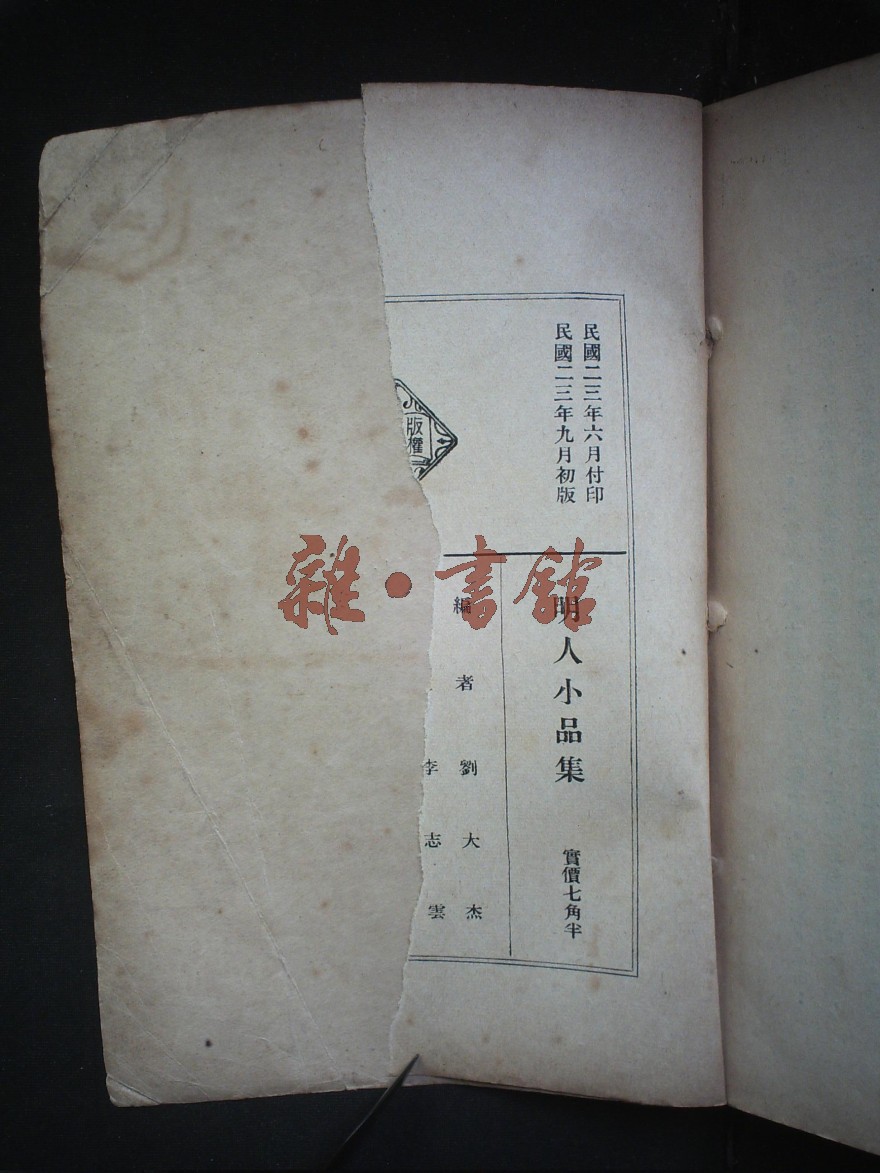 民國二三年六月付印
民國二三年九月初版
版權
明人小品集
實價七角半
編者 劉大杰
李志雲
雜·書館